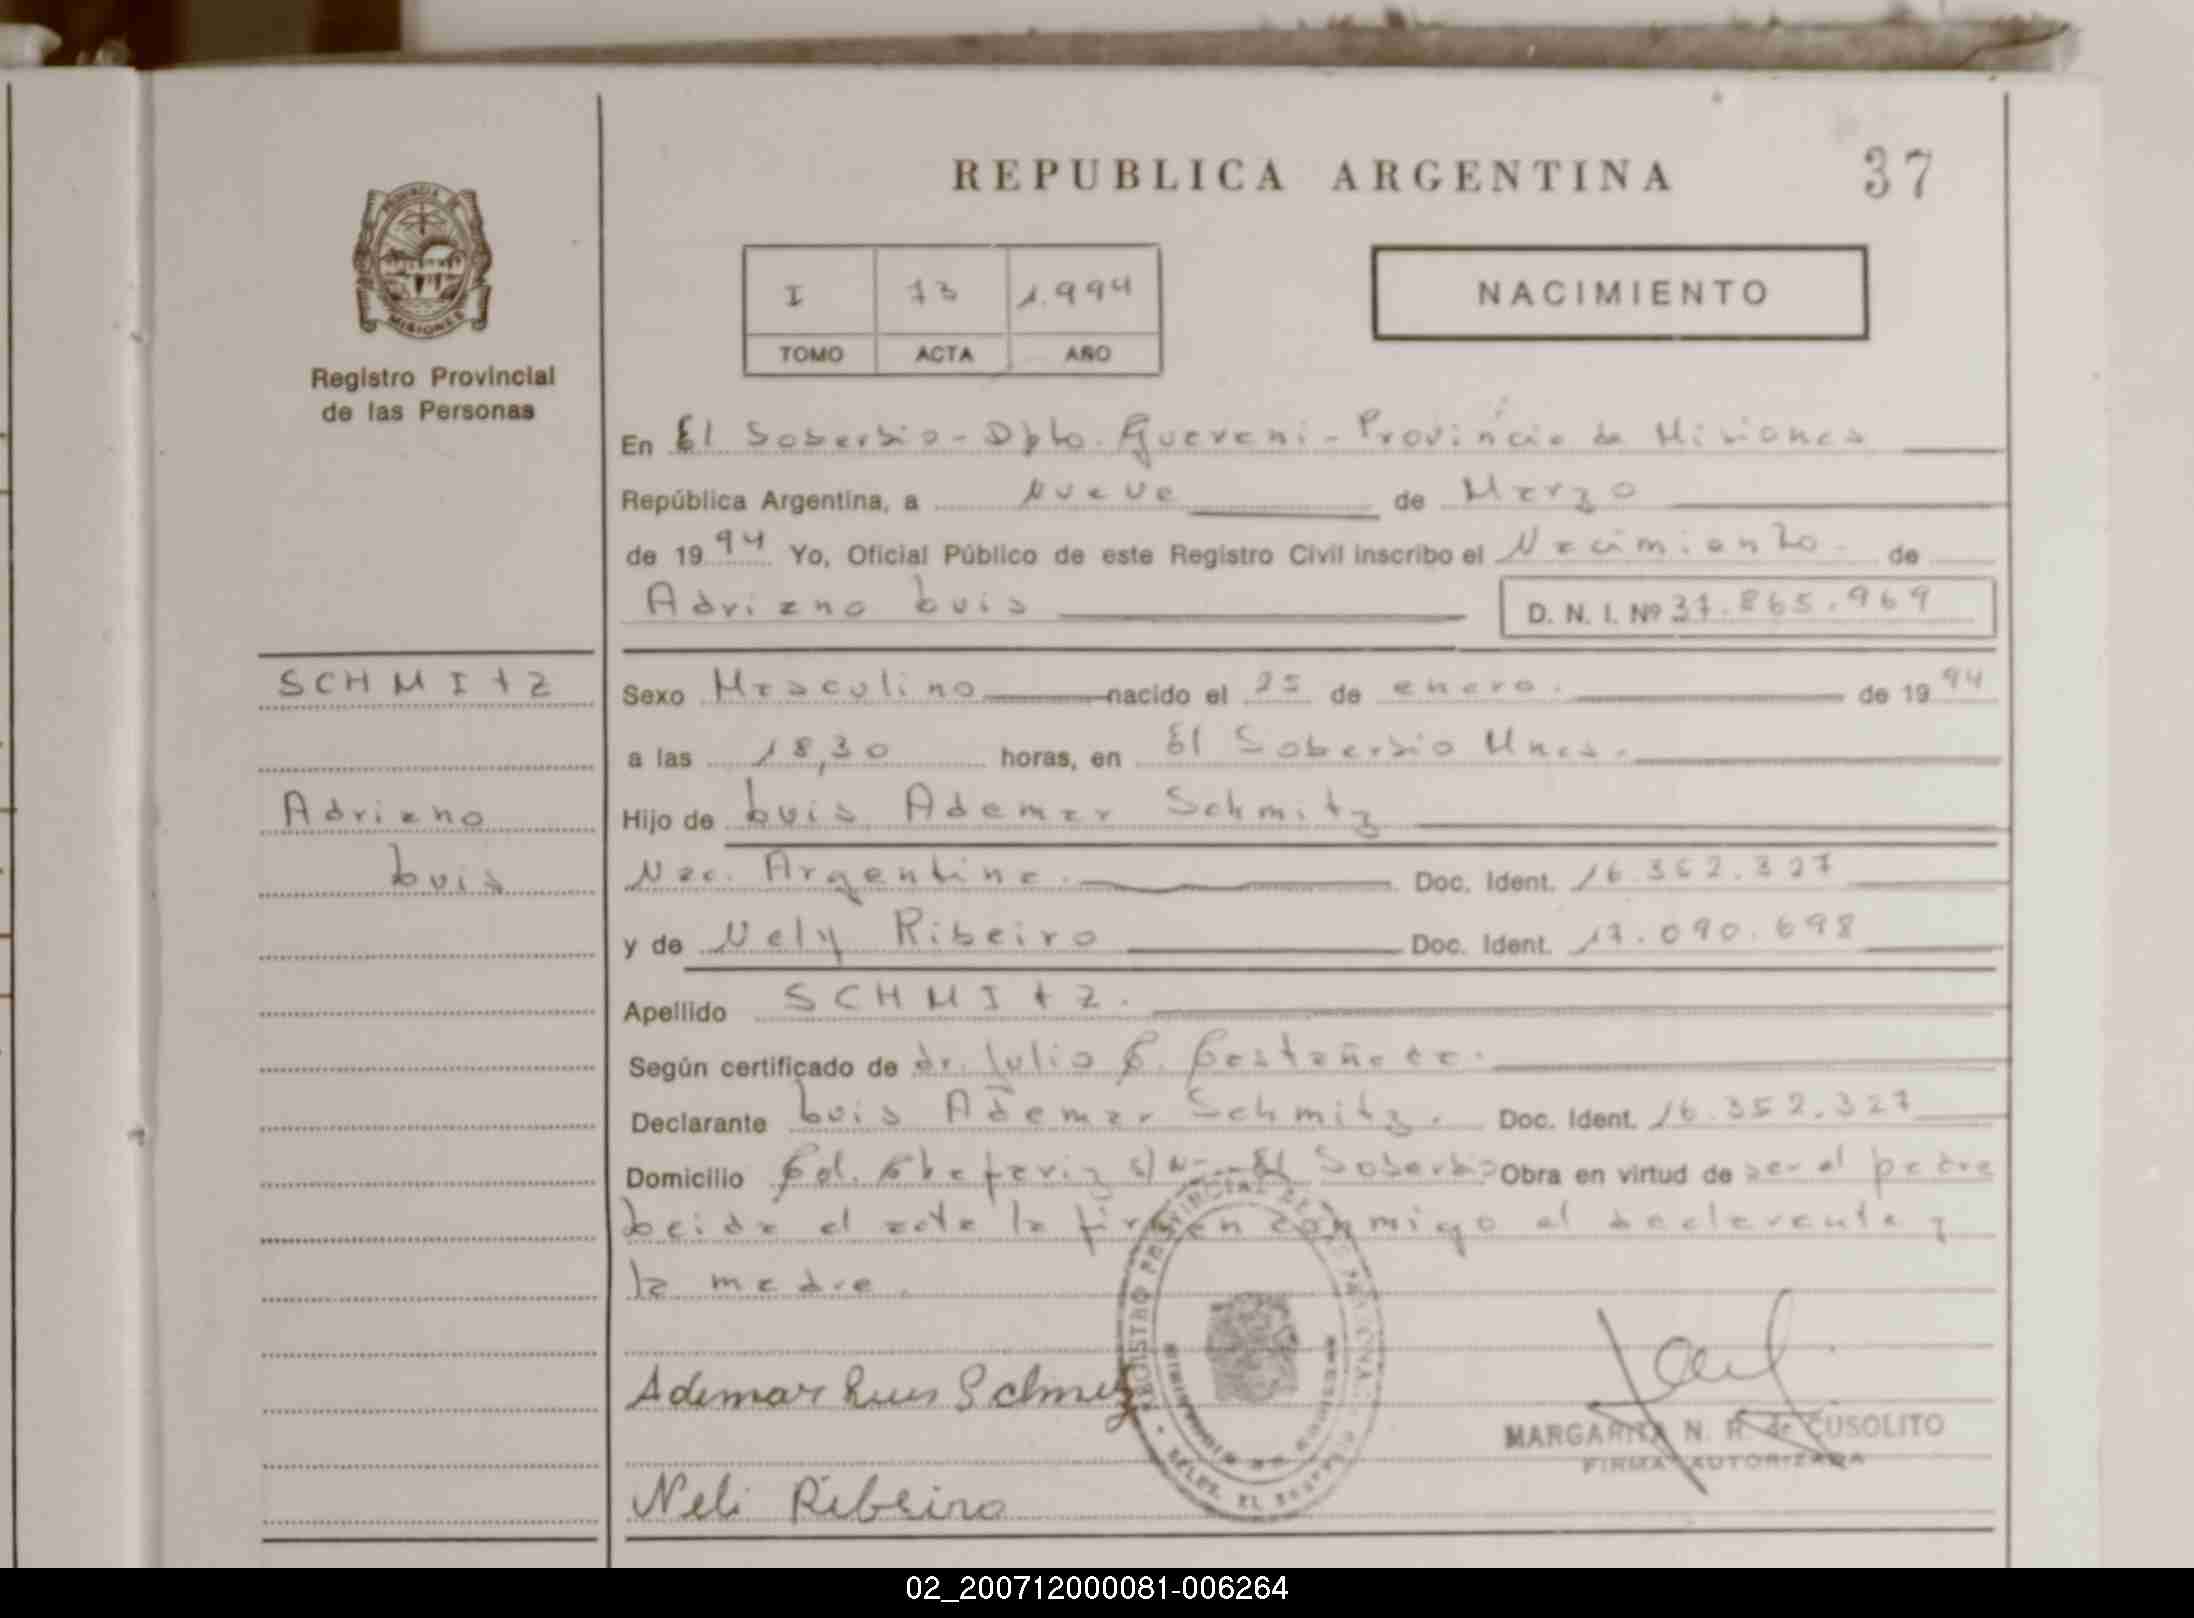 REPUBLICA ARGENTINA
37
PROVINCIA DE
MISIONES
Registro Provincial
de las Personas
I 73 1.994
TOMO ACTA AÑO
NACIMIENTO
En El Soberbio - Dpto. Guarani - Provincia de Misiones
República Argentina, a nueve de Marzo
de 1994 Yo, Oficial Público de este Registro Civil inscribo el Nacimiento. de
Adriano Luis
D. N. I. Nº 37.865.969
SCHMItZ
Adriano
Luis
Sexo Masculino nacido el 25 de enero. de 1994
a las 18,30 horas, en El Soberbio Mnes.
Hijo de Luis Ademar Schmitz
Nac. Argentina. Doc. Ident. 16.352.327
y de Nely Ribeiro Doc. Ident. 17.090.698
Apellido SCHMItZ.
Según certificado de dr. Julio C. Castañeda.
Declarante Luis Ademar Schmitz. Doc. Ident. 16.352.327
Domicilio Col. s/n - El Soberbio Obra en virtud de ser el padre
Leida el acta la firman conmigo el declarante y
la madre.
Ademar Luis Schmitz
REGISTRO PROVINCIAL DE LAS PERSONAS
EL SOBERBIO
MARGARITA N. R. de CUSOLITO
FIRMA AUTORIZADA
Neli Ribeiro
02_200712000081-006264